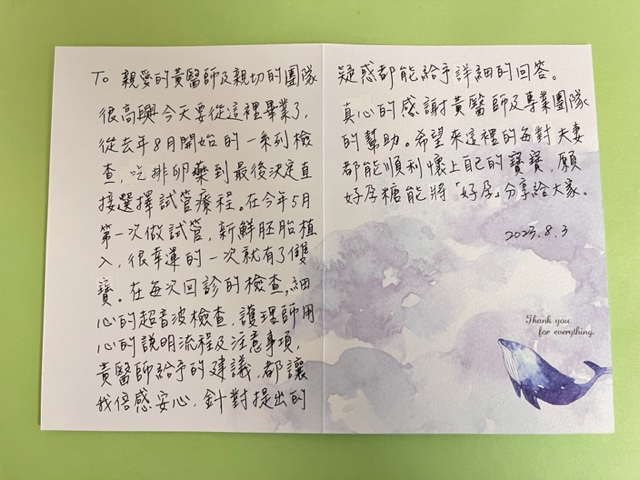 To 親愛的黃醫師及親切的團隊
很高興今天要從這裡畢業了,
從去年8月開始的一系列檢
查,吃排卵藥到最後決定直
接選擇試管療程。在今年5月
第一次做試管,新鮮胚胎植
入,很幸運的一次就有了雙
寶。在每次回診的檢查,細
心的超音波檢查,護理師用
心的說明流程及注意事項,
黃醫師給予的建議,都讓
我倍感安心,針對提出的
疑惑都能給予詳細的回答。
真心的感謝黃醫師及專業團隊
的幫助。希望來這裡的每對夫妻
都能順利懷上自己的寶寶,願
好孕糖能將「好孕」分享給大家。
2023.8.3
Thank you
for everything.